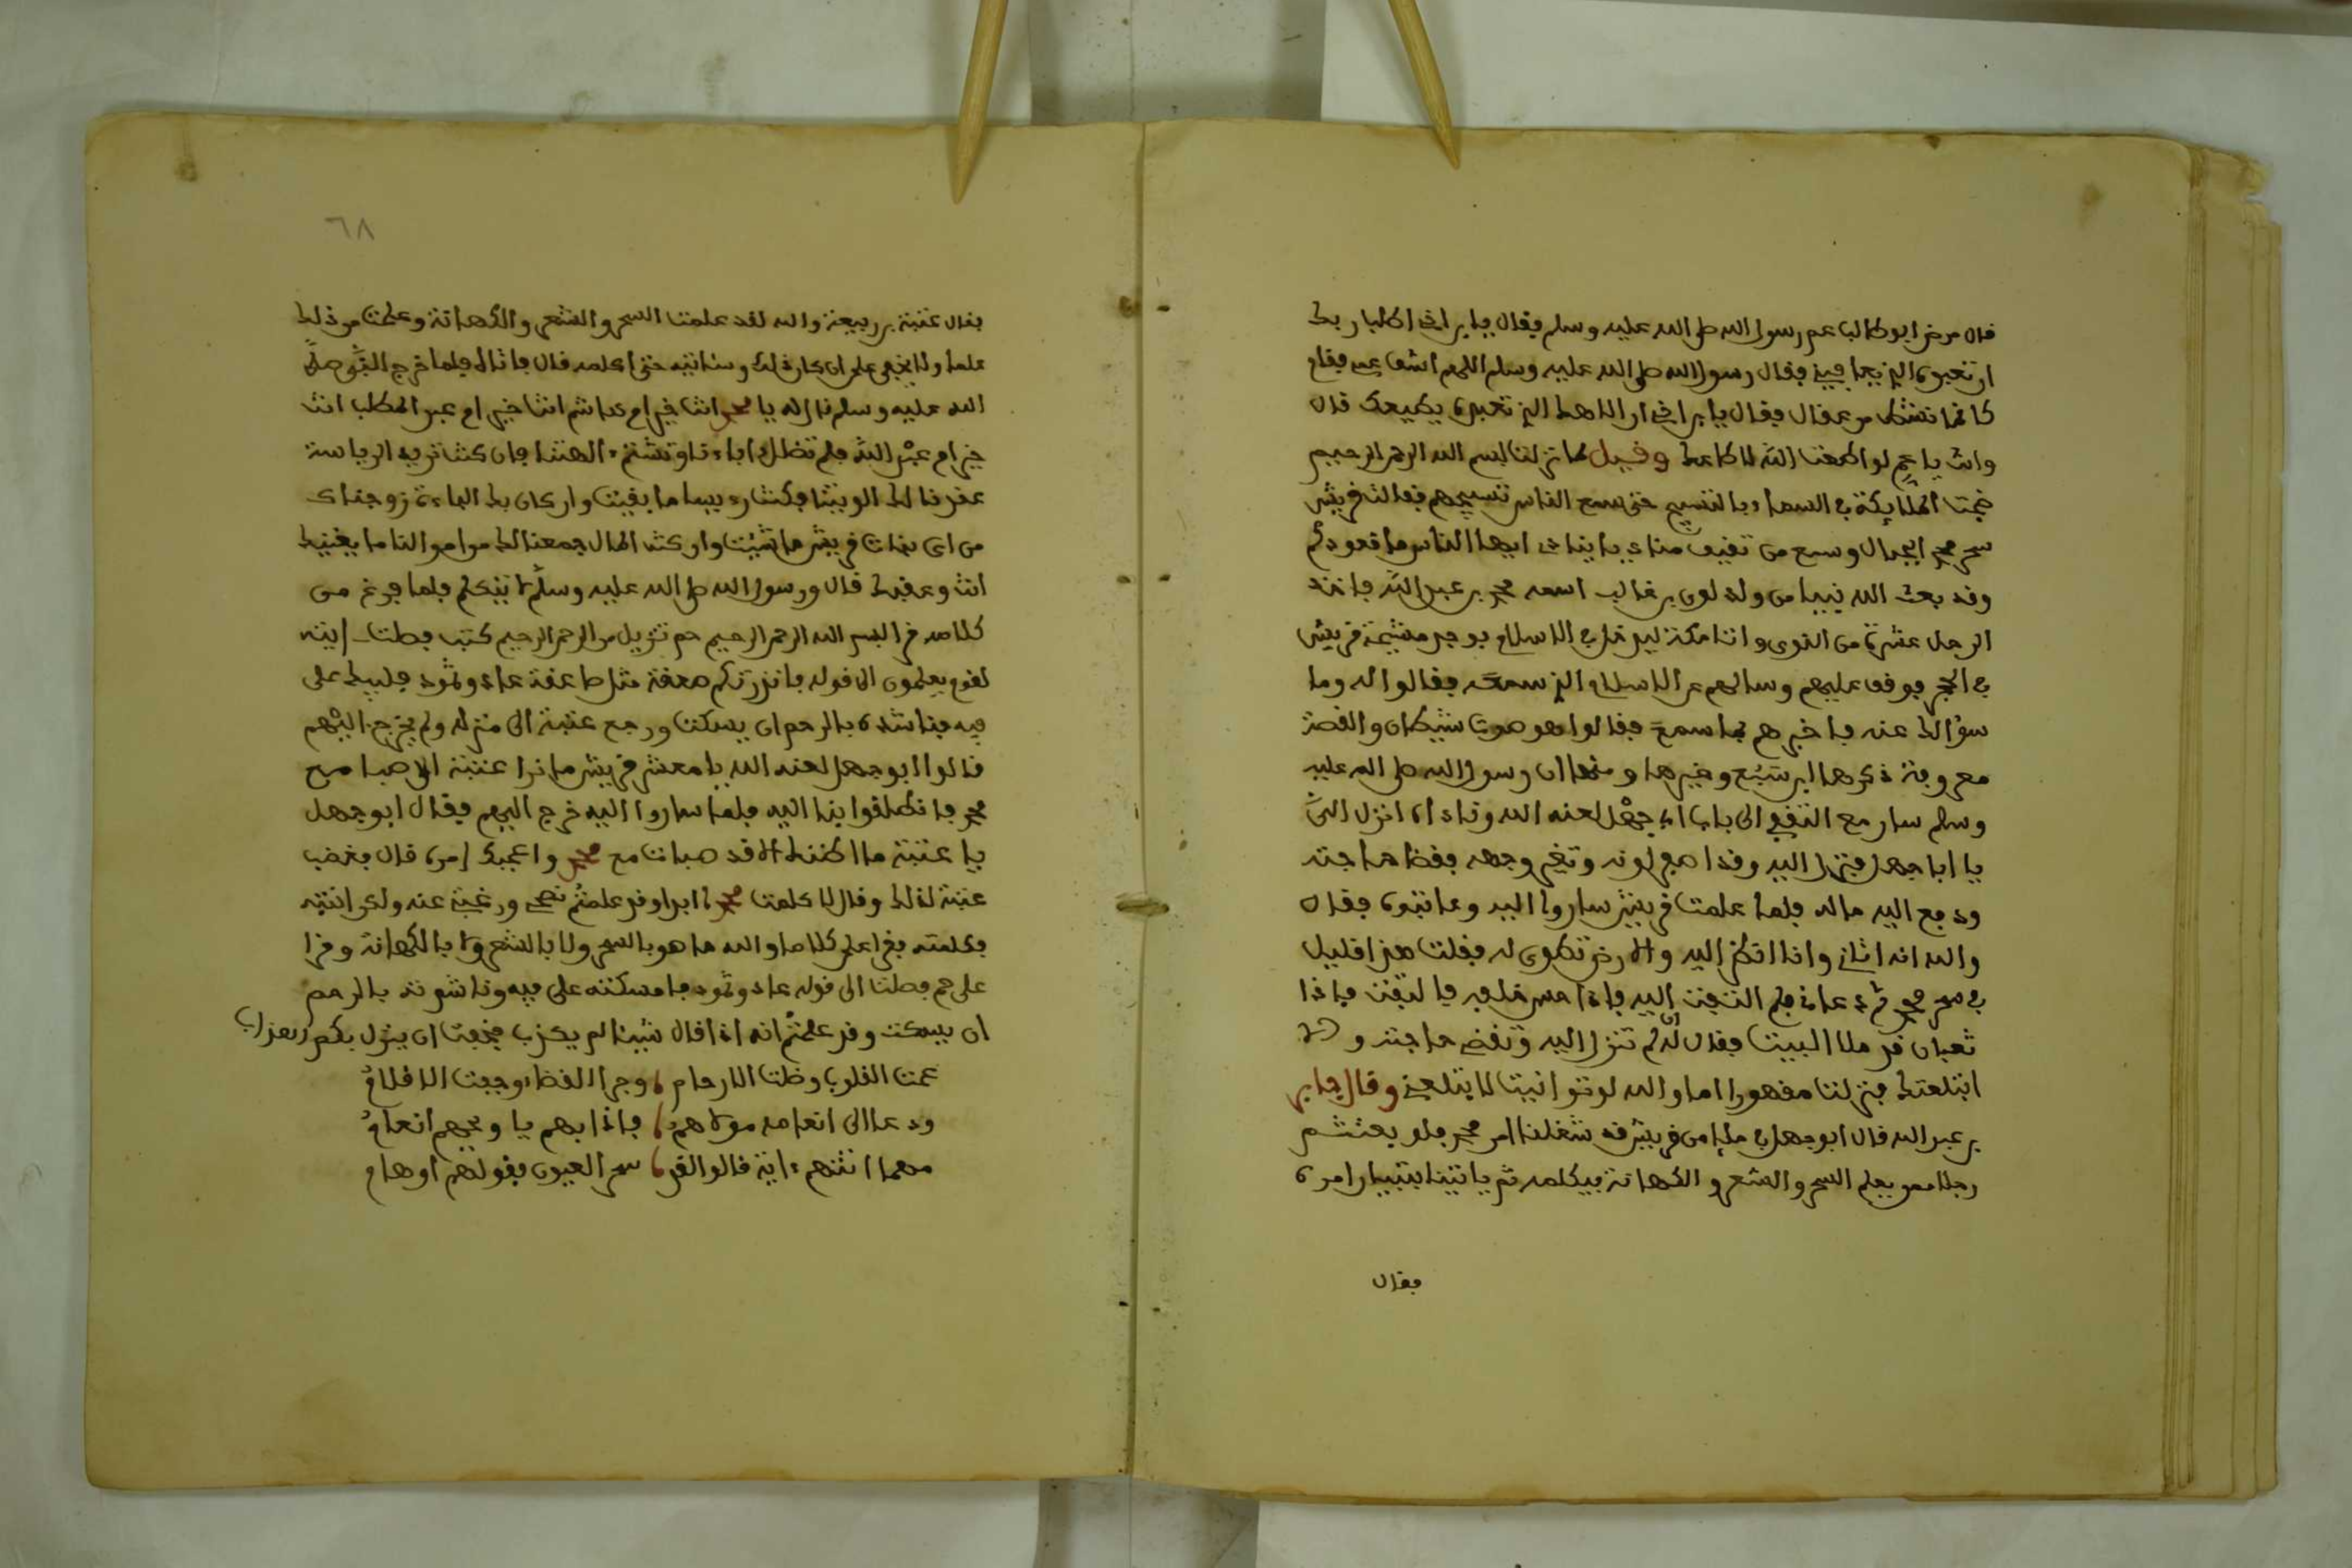 قال مرض ابو طالب عم رسول الله صلى الله عليه وسلم فقال يا بن اخي اطلب ربك
ان تعبده الذي يعافيني فقال رسول الله صلى الله عليه وسلم اللهم اشف عمي فقام
كانما نشط من عقال فقال يا بن اخي ان الاهك الذي تعبده يطيعك قال
وانت يا عم لو اطعت الله لاطاعك وقيل لما نزلت بسم الله الرحمن الرحيم
ضجت الملايكة في السماء بالتسبيح حتى سمع الناس تسبيحهم فقالت قريش
سحر محمد الجبال وسمع من ثقيف مناد ينادي ايها الناس ما قعودكم
وقد بعث الله نبيا من ولد لوي بن غالب اسمه محمد بن عبد الله فاخذ
الرجل عشرة من النوى واتا مكة ليدخل في الاسلام فوجد مشيخة قريش
في الحجر فوقف عليهم وسالهم عن الاسلام الذي سمعه فقالوا له وما
سؤالك عنه فاخبرهم بما سمع فقالوا هو صوت شيطان والقصة
معروفة ذكرها ابن سبع وغيرها ومنها ان رسول الله صلى الله عليه
وسلم سار مع الثقفي الى باب ابي جهل لعنه الله وناداه انزل الي
يا ابا جهل فنزل اليه وقد اصفر لونه وتغير وجهه فقضا حاجته
ودفع اليه ماله فلما علمت قريش ساروا اليه وعاتبوه فقال
والله انه اتاني وانا انظر اليه والارض تطوى له فقلت هذا قليل
في سحر محمد ثم عاد فلم التفت اليه فاذا حس خلفي فالتفت فاذا
ثعبان قد ملا البيت فقال لي ان لم تنزل اليه وتقضي حاجته والا
ابتلعتك فنزلت مقهورا اما والله لو توانيت لابتلعني وقال جابر
بن عبد الله قال ابو جهل في ملإ من قريش قد شغلنا امر محمد فلو بعثتم
رجلا ممن يعلم السحر والشعر والكهانة فيكلمه ثم ياتينا بتبيان امره
فقال
٦٨
فقال عتبة بن ربيعة والله لقد علمت السحر والشعر والكهانة وعلمت من ذلك
علما ولا يخفى علي ان كان ذلك وسئاتيه حتى اكلمه قال فاتاه فلما خرج النبي صلى
الله عليه وسلم قال له يا محمد انت خير ام هاشم انت خير ام عبد المطلب انت
خير ام عبد الله فلم تضلل اباءنا وتشتم ءالهتنا فان كنت تريد الرياسة
عقدنا لك الويتنا فكنت رءيسا ما بقيت وان كان بك الباءة زوجناك
من اي بنات قريش ما شئت وان كنت المال جمعنا لك من اموالنا ما يغنيك
انت وعقبك قال ورسول الله صلى الله عليه وسلم لا يتكلم فلما فرغ من
كلامه قرا بسم الله الرحمن الرحيم حم تنزيل من الرحمن الرحيم كتب فصلت ايته
لقوم يعلمون الى قوله فانذرتكم صعقة مثل صاعقة عاد وثمود فلبيك على
فيه فناشده بالرحم ان يسكت ورجع عتبة الى منزله ولم يخرج اليهم
قالوا ابو جهل لعنه الله يا معشر قريش ما نرا عتبة الا صبا مع
محمد فانطلقوا بنا اليه فلما ساروا اليه خرج اليهم فقال ابو جهل
يا عتبة ما اظنك الا قد صبات مع محمد واعجبك امره قال فغضب
عتبة لذلك وقال لا كلمت محمدا ابدا وقد علمتم نصحي ورغبتي عنه ولكن اتيته
فكلمته فقرا علي كلاما والله ما هو بالسحر ولا بالشعر ولا بالكهانة وقرا
علي حم فصلت الى قوله عاد وثمود فامسكته على فيه وناشدته بالرحم
ان يسكت وقد علمتم انه اذا قال شيئا لم يكذب فخفت ان ينزل بكم العذاب
عمت القلوب وضلت الارحام وجرا القضاء وجفت الاقلام
ودعا الى انعامه مولاهم فاذا بهم يا ويحهم انعام
مهما اتتهم ءاية قالوا لقد سحر العيون بقولهم اوهام